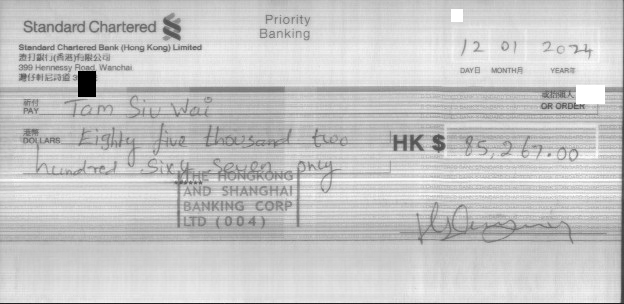 Standard Chartered
Priority
Banking
Standard Chartered Bank (Hong Kong) Limited
渣打銀行(香港)有限公司
399 Hennessy Road, Wanchai.
灣仔軒尼詩道 3
12 01 2024
DAY日 MONTH月 YEAR年
祈付
PAY Tam Siu Wai
或抬頭人
OR ORDER
港幣
DOLLARS Eighty five thousand two
hundred Sixty Seven only
HK $ 85,267.00
THE HONGKONG
AND SHANGHAI
BANKING CORP
LTD (004)